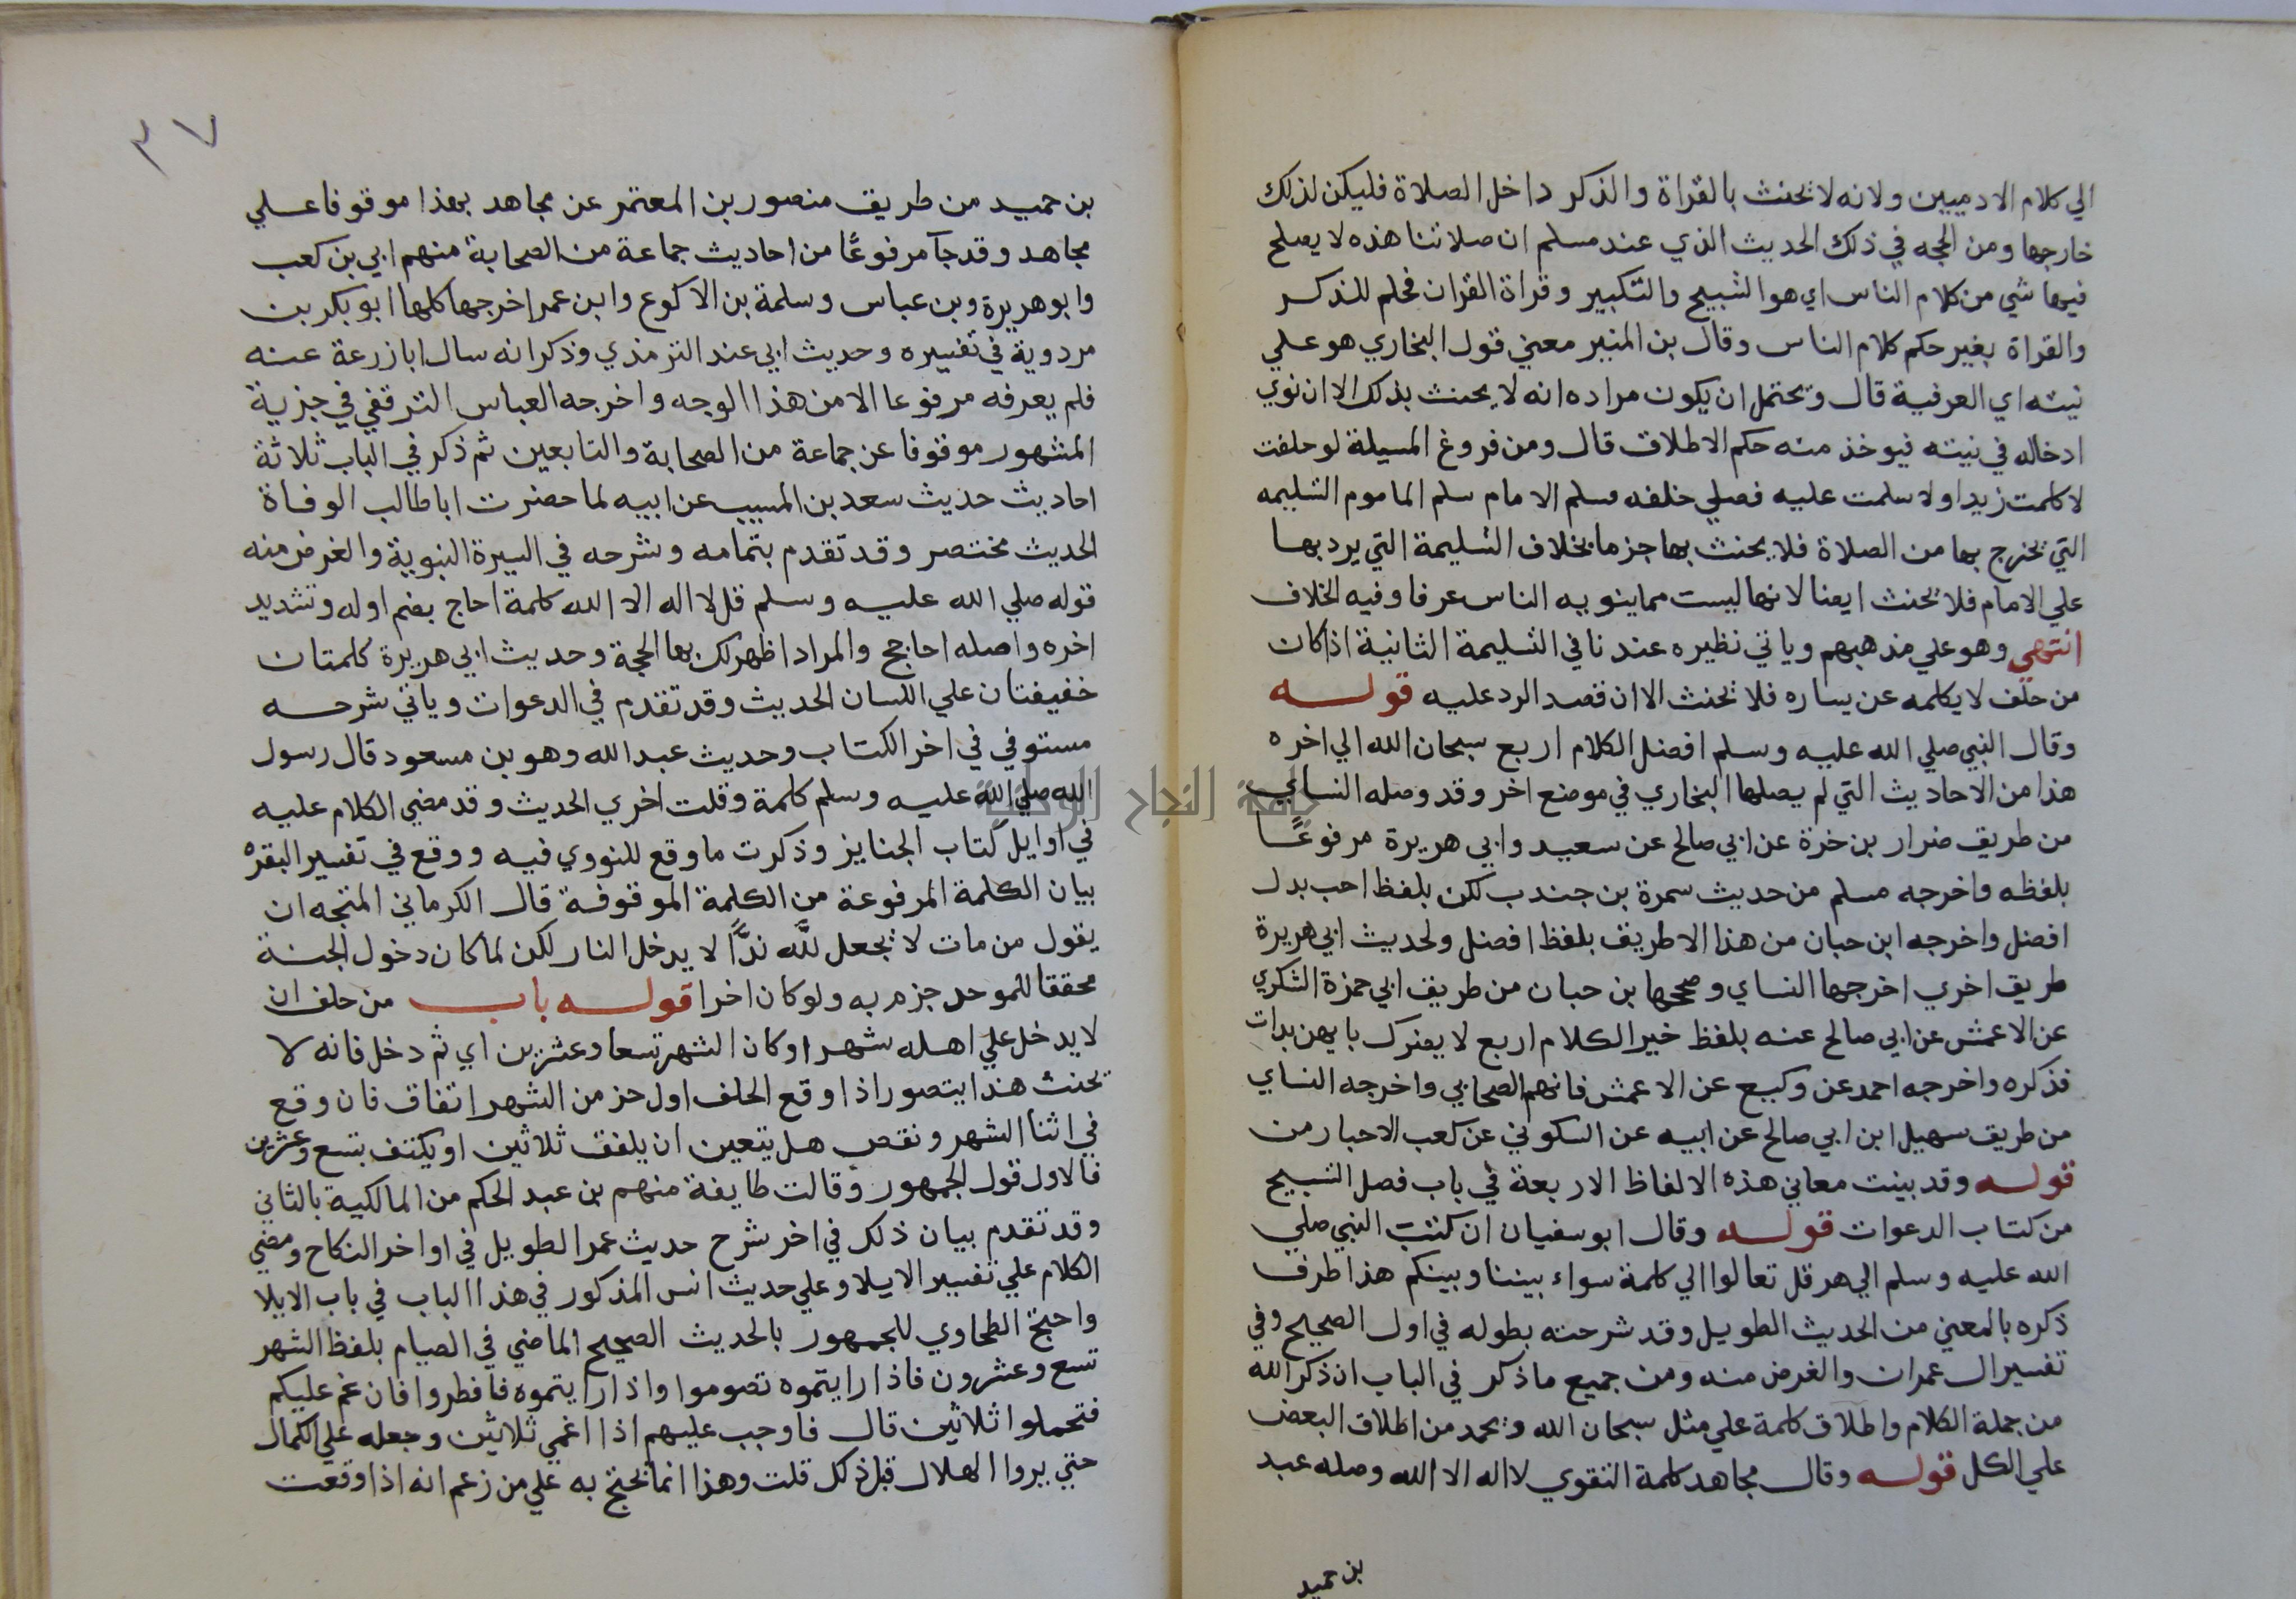 الي كلام الادميين ولانه لا يحنث بالقراة والذكر داخل الصلاة فليكن لذلك
خارجها ومن الحجه في ذلك الحديث الذي عند مسلم ان صلاتنا هذه لا يصلح
فيها شي من كلام الناس اي هو التسبيح والتكبير وقراة القران فحلم للذكر
والقراة بغير حكم كلام الناس وقال بن المنير معني قول البخاري هو علي
نيته اي العرفية قال ويحتمل ان يكون مراده انه لا يحنث بذلك الا ان نوي
ادخاله في نيته فيوخذ منه حكم الاطلاق قال ومن فروع المسيلة لو حلفت
لا كلمت زيدا ولا سلمت عليه فصلي خلفه مسلم الامام سلم الماموم التسليمه
التي يخرج بها من الصلاة فلا يحنث بها جزما بخلاف التسليمة التي يرد بها
علي الامام فلا يحنث ايضا لانها ليست مما ينويه الناس عرفا وفيه الخلاف
انتهي وهو علي مذهبهم وياتي نظيره عندنا في التسليمة الثانية اذا كان
من حلف لا يكلمه عن يساره فلا يحنث الا ان قصد الرد عليه قوله
وقال النبي صلي الله عليه وسلم افضل الكلام اربع سبحان الله الي اخره
هذا من الاحاديث التي لم يصلها البخاري في موضع اخر وقد وصله النساي
من طريق ضرار بن خرة عن ابي صالح عن سعيد وابي هريرة مرفوعًا
بلفظه واخرجه مسلم من حديث سمرة بن جندب لكن بلفظ احب بدل
افضل واخرجه ابن حبان من هذا الاطريق بلفظ افضل ولحديث ابي هريرة
طريق اخري اخرجها النساي وصححها بن حبان من طريق ابي حمزة الشكري
عن الاعمش عن ابي صالح عنه بلفظ خير الكلام اربع لا يضرك بايهن بدات
فذكره واخرجه احمد عن وكيع عن الاعمش فانهم الصحابي واخرجه النساي
من طريق سهيل ابن ابي صالح عن ابيه عن السكوني عن كعب الاحبار من
قوله وقد بينت معاني هذه الالفاظ الاربعة في باب فصل التسبيح
من كتاب الدعوات قوله وقال ابو سفيان ان كتب النبي صلي
الله عليه وسلم الي هرقل تعالوا الي كلمة سواء بيننا وبينكم هذا طرف
ذكره بالمعني من الحديث الطويل وقد شرحته بطوله في اول الصحيح وفي
تفسير ال عمران والغرض منه ومن جميع ما ذكر في الباب ان ذكر الله
من جملة الكلام واطلاق كلمة علي مثل سبحان الله وبحمد من اطلاق البعض
علي الكل قوله وقال مجاهد كلمة التقوي لا اله الا الله وصله عبد
بن حميد
٣٧
بن حميد من طريق منصور بن المعتمر عن مجاهد بهذا موقوفا علي
مجاهد وقد جآ مرفوعًا من احاديث جماعة من الصحابة منهم ابي بن كعب
وابو هريرة وبن عباس وسلمة بن الاكوع وابن عمر اخرجها كلها ابو بكر بن
مردوية في تفسيره وحديث ابي عند الترمذي وذكر انه سال ابا زرعة عنه
فلم يعرفه مرفوعا الا من هذا الوجه واخرجه العباس الترقفي في جزية
المشهور موقوفا عن جماعة من الصحابة والتابعين ثم ذكر في الباب ثلاثة
احاديث حديث سعد بن المسيب عن ابيه لما حضرت ابا طالب الوفاة
الحديث مختصر وقد تقدم بتمامه وشرحه في السيرة النبوية والغرض منه
قوله صلي الله عليه وسلم قل لا اله الا الله كلمة احاج بضم اوله وتشديد
اخره واصله احاجج والمراد اظهر لك بها الحجة وحديث ابي هريرة كلمتان
خفيفتان علي اللسان الحديث وقد تقدم في الدعوات وياتي شرحه
مستوفي في اخر الكتاب وحديث عبد الله وهو بن مسعود قال رسول
الله صلي الله عليه وسلم كلمة وقلت اخري الحديث وقد مضي الكلام عليه
في اوايل كتاب الجنايز وذكرت ما وقع للنووي فيه ووقع في تفسير البقره
بيان الكلمة المرفوعة من الكلمة الموقوفة قال الكرماني المتجه ان
يقول من مات لا يجعل لله ندًّا لا يدخل النار لكن لما كان دخول الجنة
محققا للموحد جزم به ولو كان اخرا قوله باب من حلف ان
لا يدخل علي اهله شهرا وكان الشهر تسعا وعشرين اي ثم دخل فانه لا
يحنث هذا يتصور اذا وقع الحلف اول حز من الشهر اتفاق فان وقع
في اثنا الشهر ونقص هل يتعين ان يلفق ثلاثين او يكتف بتسع وعشرين
فالاول قول الجمهور وقالت طايفة منهم بن عبد الحكم من المالكية بالثاني
وقد تقدم بيان ذلك في اخر شرح حديث عمر الطويل في اواخر النكاح ومضي
الكلام علي تفسير الايلا وعلي حديث انس المذكور في هذا الباب في باب الايلا
واحتج الطحاوي للجمهور بالحديث الصحيح الماضي في الصيام بلفظ الشهر
تسع وعشرون فاذا رايتموه تصوموا واذا رايتموه فافطروا فان غم عليكم
فتحملوا ثلاثين قال فاوجب عليهم اذا اغمي ثلاثين وجعله علي الكمال
حتي يروا الهلال قبل ذلك قلت وهذا انما يحتج به علي من زعم انه اذا وقعت
جامعة النجاح الوطنية